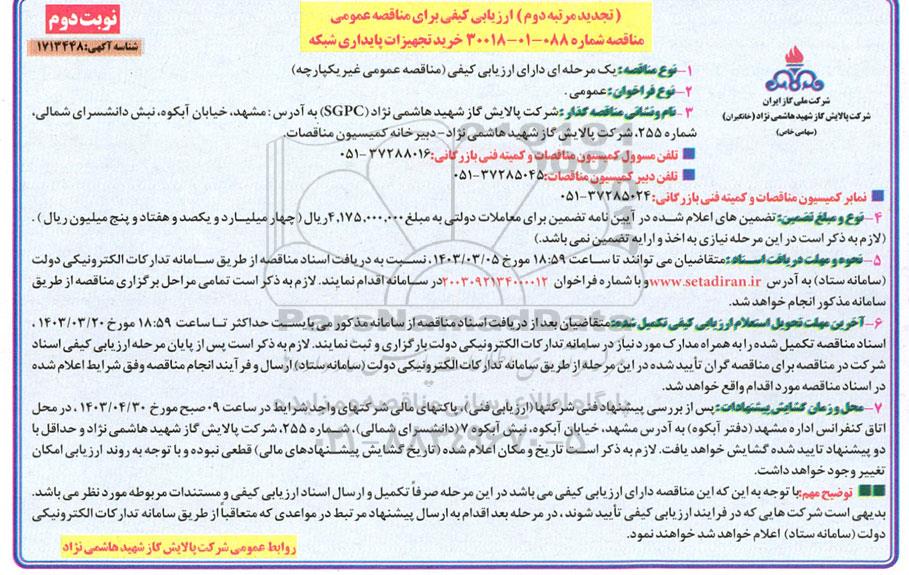 نوبت دوم
شناسه آگهی: ۱۷۱۳۴۴۸
(تجدید مرتبه دوم) ارزیابی کیفی برای مناقصه عمومی
مناقصه شماره ۰۸۸-۰۱-۳۰۰۱۸ خرید تجهیزات پایداری شبکه
شرکت ملی گاز ایران
شرکت پالایش گاز شهید هاشمی نژاد (خانگیران)
(سهامی خاص)
۱-نوع مناقصه: یک مرحله ای دارای ارزیابی کیفی (مناقصه عمومی غیر یکپارچه)
۲-نوع فراخوان: عمومی.
۳-نام ونشانی مناقصه گذار: شرکت پالایش گاز شهید هاشمی نژاد (SGPC) به آدرس: مشهد، خیابان آبکوه، نبش دانشسرای شمالی،
شماره ۲۵۵، شرکت پالایش گاز شهید هاشمی نژاد-دبیرخانه کمیسیون مناقصات.
تلفن مسوول کمیسیون مناقصات و کمیته فنی بازرگانی: ۳۷۲۸۸۰۱۶-۰۵۱
تلفن دبیر کمیسیون مناقصات: ۳۷۲۸۵۰۴۵-۰۵۱
نمابر کمیسیون مناقصات و کمیته فنی بازرگانی: ۳۷۲۸۵۰۲۴-۰۵۱
۴-نوع و مبلغ تضمین: تضمین های اعلام شده در آیین نامه تضمین برای معاملات دولتی به مبلغ ۴,۱۷۵,۰۰۰,۰۰۰ریال (چهار میلیارد و یکصد و هفتاد و پنج میلیون ریال).
(لازم به ذکر است در این مرحله نیازی به اخذ و ارایه تضمین نمی باشد.)
۵-نحوه و مهلت دریافت اسناد: متقاضیان می توانند تا ساعت ۱۸:۵۹ مورخ ۱۴۰۳/۰۳/۰۵، نسبت به دریافت اسناد مناقصه از طریق سامانه تدارکات الکترونیکی دولت
(سامانه ستاد) به آدرس www.setadiran.ir و با شماره فراخوان ۲۰۰۳۰۹۲۱۳۴۰۰۰۰۱۲ در سامانه اقدام نمایند. لازم به ذکر است تمامی مراحل برگزاری مناقصه از طریق
سامانه مذکور انجام خواهد شد.
۶-آخرین مهلت تحویل استعلام ارزیابی کیفی تکمیل شده: متقاضیان بعد از دریافت اسناد مناقصه از سامانه مذکور می بایست حداکثر تا ساعت ۱۸:۵۹ مورخ ۱۴۰۳/۰۳/۲۰،
اسناد مناقصه تکمیل شده را به همراه مدارک مورد نیاز در سامانه تدارکات الکترونیکی دولت بارگزاری و ثبت نمایند. لازم به ذکر است پس از پایان مرحله ارزیابی کیفی اسناد
شرکت در مناقصه برای مناقصه گران تأیید شده در این مرحله از طریق سامانه تدارکات الکترونیکی دولت (سامانه ستاد) ارسال و فرآیند انجام مناقصه وفق شرایط اعلام شده
در اسناد مناقصه مورد اقدام واقع خواهد شد.
۷-محل و زمان گشایش پیشنهادات: پس از بررسی پیشنهاد فنی شرکتها (ارزیابی فنی)، پاکتهای مالی شرکتهای واجد شرایط در ساعت ۰۹ صبح مورخ ۱۴۰۳/۰۴/۳۰، در محل
اتاق کنفرانس اداره مشهد (دفتر آبکوه) به آدرس مشهد، خیابان آبکوه، نبش آبکوه ۷ (دانشسرای شمالی)، شماره ۲۵۵، شرکت پالایش گاز شهید هاشمی نژاد و حداقل با
دو پیشنهاد تایید شده گشایش خواهد یافت. لازم به ذکر است تاریخ و مکان اعلام شده (تاریخ گشایش پیشنهادهای مالی) قطعی نبوده و با توجه به روند ارزیابی امکان
تغییر وجود خواهد داشت.
توضیح مهم: با توجه به این که این مناقصه دارای ارزیابی کیفی می باشد در این مرحله صرفاً تکمیل و ارسال اسناد ارزیابی کیفی و مستندات مربوطه مورد نظر می باشد.
بدیهی است شرکت هایی که در فرایند ارزیابی کیفی تأیید شوند، در مرحله بعد اقدام به ارسال پیشنهاد مرتبط در مواعدی که متعاقباً از طریق سامانه تدارکات الکترونیکی
دولت (سامانه ستاد) اعلام خواهد شد خواهند نمود.
روابط عمومی شرکت پالایش گاز شهید هاشمی نژاد
ParsNamadData
پایگاه اطلاع رسانی مناقصه و مزایده
۰۲۱-۸۸۳۴۹۶۷۰-۵